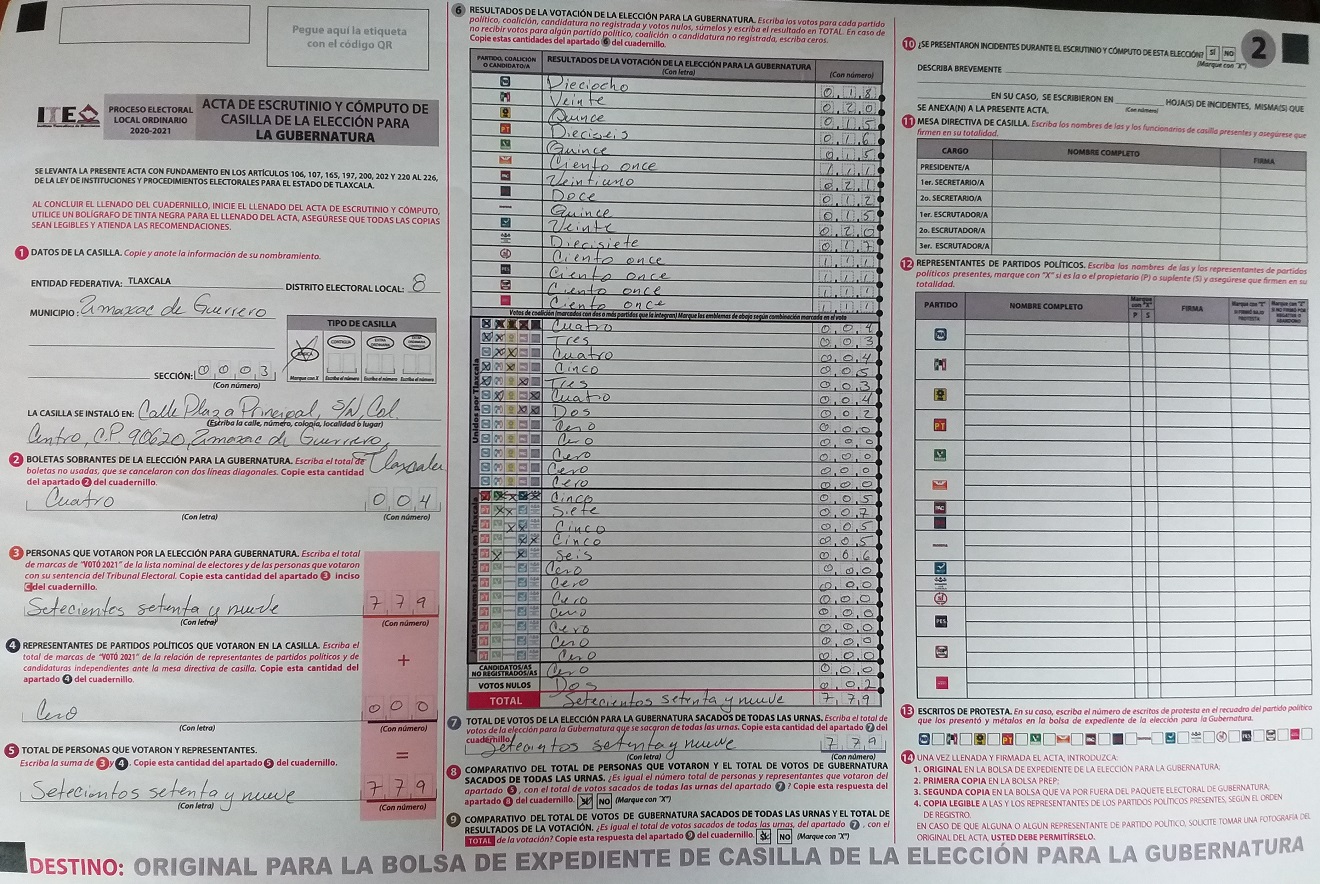 Pegue aquí la etiqueta
con el código QR
ITE
PROCESO ELECTORAL
LOCAL ORDINARIO
2020-2021
ACTA DE ESCRUTINIO Y CÓMPUTO DE
CASILLA DE LA ELECCIÓN PARA
LA GUBERNATURA
SE LEVANTA LA PRESENTE ACTA CON FUNDAMENTO EN LOS ARTÍCULOS 106, 107, 165, 197, 200, 202 Y 220 AL 226,
DE LA LEY DE INSTITUCIONES Y PROCEDIMIENTOS ELECTORALES PARA EL ESTADO DE TLAXCALA.
AL CONCLUIR EL LLENADO DEL CUADERNILLO, INICIE EL LLENADO DEL ACTA DE ESCRUTINIO Y CÓMPUTO,
UTILICE UN BOLÍGRAFO DE TINTA NEGRA PARA EL LLENADO DEL ACTA, ASEGÚRESE QUE TODAS LAS COPIAS
SEAN LEGIBLES Y ATIENDA LAS RECOMENDACIONES.
1 DATOS DE LA CASILLA. Copie y anote la información de su nombramiento.
ENTIDAD FEDERATIVA: TLAXCALA DISTRITO ELECTORAL LOCAL: 8
MUNICIPIO: Zimazac de Guerrero
TIPO DE CASILLA
BÁSICA CONTIGUA
Marque con X Escriba el número Escriba el número Escriba el número
SECCIÓN: 0 0 0 3
(Con número)
LA CASILLA SE INSTALÓ EN: Calle Plaza Principal, S/N, Col.
(Escriba la calle, número, colonia, localidad o lugar)
Centro, C.P. 90620, Zimazac de Guerrero,
Tlaxcala
2 BOLETAS SOBRANTES DE LA ELECCIÓN PARA LA GUBERNATURA. Escriba el total de
boletas no usadas, que se cancelaron con dos líneas diagonales. Copie esta cantidad
del apartado 2 del cuadernillo.
Cuatro 0 0 4
(Con letra) (Con número)
3 PERSONAS QUE VOTARON POR LA ELECCIÓN PARA GUBERNATURA. Escriba el total
de marcas de "VOTÓ 2021" de la lista nominal de electores y de las personas que votaron
con su sentencia del Tribunal Electoral. Copie esta cantidad del apartado 3 inciso
C del cuadernillo.
Setecientos setenta y nueve 7 7 9
(Con letra) (Con número)
4 REPRESENTANTES DE PARTIDOS POLÍTICOS QUE VOTARON EN LA CASILLA. Escriba el
total de marcas de "VOTÓ 2021" de la relación de representantes de partidos políticos y de
candidaturas independientes ante la mesa directiva de casilla. Copie esta cantidad del
apartado 4 del cuadernillo.
+
Cero 0 0 0
(Con letra) (Con número)
5 TOTAL DE PERSONAS QUE VOTARON Y REPRESENTANTES.
Escriba la suma de 3 y 4. Copie esta cantidad del apartado 5 del cuadernillo.
=
Setecientos setenta y nueve 7 7 9
(Con letra) (Con número)
6 RESULTADOS DE LA VOTACIÓN DE LA ELECCIÓN PARA LA GUBERNATURA. Escriba los votos para cada partido
político, coalición, candidatura no registrada y votos nulos, súmelos y escriba el resultado en TOTAL. En caso de
no recibir votos para algún partido político, coalición o candidatura no registrada, escriba ceros.
Copie estas cantidades del apartado 6 del cuadernillo.
PARTIDO, COALICIÓN
O CANDIDATO/A
RESULTADOS DE LA VOTACIÓN DE LA ELECCIÓN PARA LA GUBERNATURA
(Con letra) (Con número)
Dieciocho 0 1 8
Veinte 0 2 0
Quince 0 1 5
PT Dieciseis 0 1 6
Quince 0 1 5
Ciento once 1 1 1
PAC Veintiuno 0 2 1
Doce 0 1 2
Quince 0 1 5
Veinte 0 2 0
Diecisiete 0 1 7
Ciento once 1 1 1
PES Ciento once 1 1 1
Ciento once 1 1 1
Ciento once 1 1 1
Votos de coalición (marcados con dos o más partidos que la integran) Marque los emblemas de abajo según combinación marcada en el voto
Unidos por Tlaxcala
Cuatro 0 0 4
Tres 0 0 3
Cuatro 0 0 4
Cinco 0 0 5
Tres 0 0 3
Cuatro 0 0 4
Dos 0 0 2
Cero 0 0 0
Cero 0 0 0
Cero 0 0 0
Cero 0 0 0
Cero 0 0 0
Juntos haremos historia en Tlaxcala
Cinco 0 0 5
Siete 0 0 7
Cinco 0 0 5
Cinco 0 0 5
Seis 0 0 6
Cero 0 0 0
Cero 0 0 0
Cero 0 0 0
Cero 0 0 0
Cero 0 0 0
Cero 0 0 0
Cero 0 0 0
CANDIDATOS/AS
NO REGISTRADOS/AS
Cero 0 0 0
VOTOS NULOS Dos 0 0 2
TOTAL Setecientos setenta y nueve 7 7 9
7 TOTAL DE VOTOS DE LA ELECCIÓN PARA LA GUBERNATURA SACADOS DE TODAS LAS URNAS. Escriba el total de
votos de la elección para la Gubernatura que se sacaron de todas las urnas. Copie esta cantidad del apartado 7 del
cuadernillo.
Setecientos setenta y nueve 7 7 9
(Con letra) (Con número)
8 COMPARATIVO DEL TOTAL DE PERSONAS QUE VOTARON Y EL TOTAL DE VOTOS DE GUBERNATURA
SACADOS DE TODAS LAS URNAS. ¿Es igual el número total de personas y representantes que votaron del
apartado 5, con el total de votos sacados de todas las urnas del apartado 7? Copie esta respuesta del
apartado 8 del cuadernillo. SÍ NO (Marque con "X")
9 COMPARATIVO DEL TOTAL DE VOTOS DE GUBERNATURA SACADOS DE TODAS LAS URNAS Y EL TOTAL DE
RESULTADOS DE LA VOTACIÓN. ¿Es igual el total de votos sacados de todas las urnas, del apartado 7, con el
TOTAL de la votación? Copie esta respuesta del apartado 9 del cuadernillo. SÍ NO (Marque con "X")
10 ¿SE PRESENTARON INCIDENTES DURANTE EL ESCRUTINIO Y CÓMPUTO DE ESTA ELECCIÓN? SÍ NO
(Marque con "X")
2
DESCRIBA BREVEMENTE
EN SU CASO, SE ESCRIBIERON EN HOJA(S) DE INCIDENTES, MISMA(S) QUE
(Con número)
SE ANEXA(N) A LA PRESENTE ACTA.
11 MESA DIRECTIVA DE CASILLA. Escriba los nombres de las y los funcionarios de casilla presentes y asegúrese que
firmen en su totalidad.
CARGO NOMBRE COMPLETO FIRMA
PRESIDENTE/A
1er. SECRETARIO/A
2o. SECRETARIO/A
1er. ESCRUTADOR/A
2o. ESCRUTADOR/A
3er. ESCRUTADOR/A
12 REPRESENTANTES DE PARTIDOS POLÍTICOS. Escriba los nombres de las y los representantes de partidos
políticos presentes, marque con "X" si es la o el propietario (P) o suplente (S) y asegúrese que firmen en su
totalidad.
PARTIDO NOMBRE COMPLETO Marque con "X" P S FIRMA
PT
PAC
PES
13 ESCRITOS DE PROTESTA. En su caso, escriba el número de escritos de protesta en el recuadro del partido político
que los presentó y métalos en la bolsa de expediente de la elección para la Gubernatura.
14 UNA VEZ LLENADA Y FIRMADA EL ACTA, INTRODUZCA:
1. ORIGINAL EN LA BOLSA DE EXPEDIENTE DE LA ELECCIÓN PARA LA GUBERNATURA;
2. PRIMERA COPIA EN LA BOLSA PREP;
3. SEGUNDA COPIA EN LA BOLSA QUE VA POR FUERA DEL PAQUETE ELECTORAL DE GUBERNATURA;
4. COPIA LEGIBLE A LAS Y LOS REPRESENTANTES DE LOS PARTIDOS POLÍTICOS PRESENTES, SEGÚN EL ORDEN
DE REGISTRO.
EN CASO DE QUE ALGUNA O ALGÚN REPRESENTANTE DE PARTIDO POLÍTICO, SOLICITE TOMAR UNA FOTOGRAFÍA DEL
ORIGINAL DEL ACTA, USTED DEBE PERMITÍRSELO.
DESTINO: ORIGINAL PARA LA BOLSA DE EXPEDIENTE DE CASILLA DE LA ELECCIÓN PARA LA GUBERNATURA